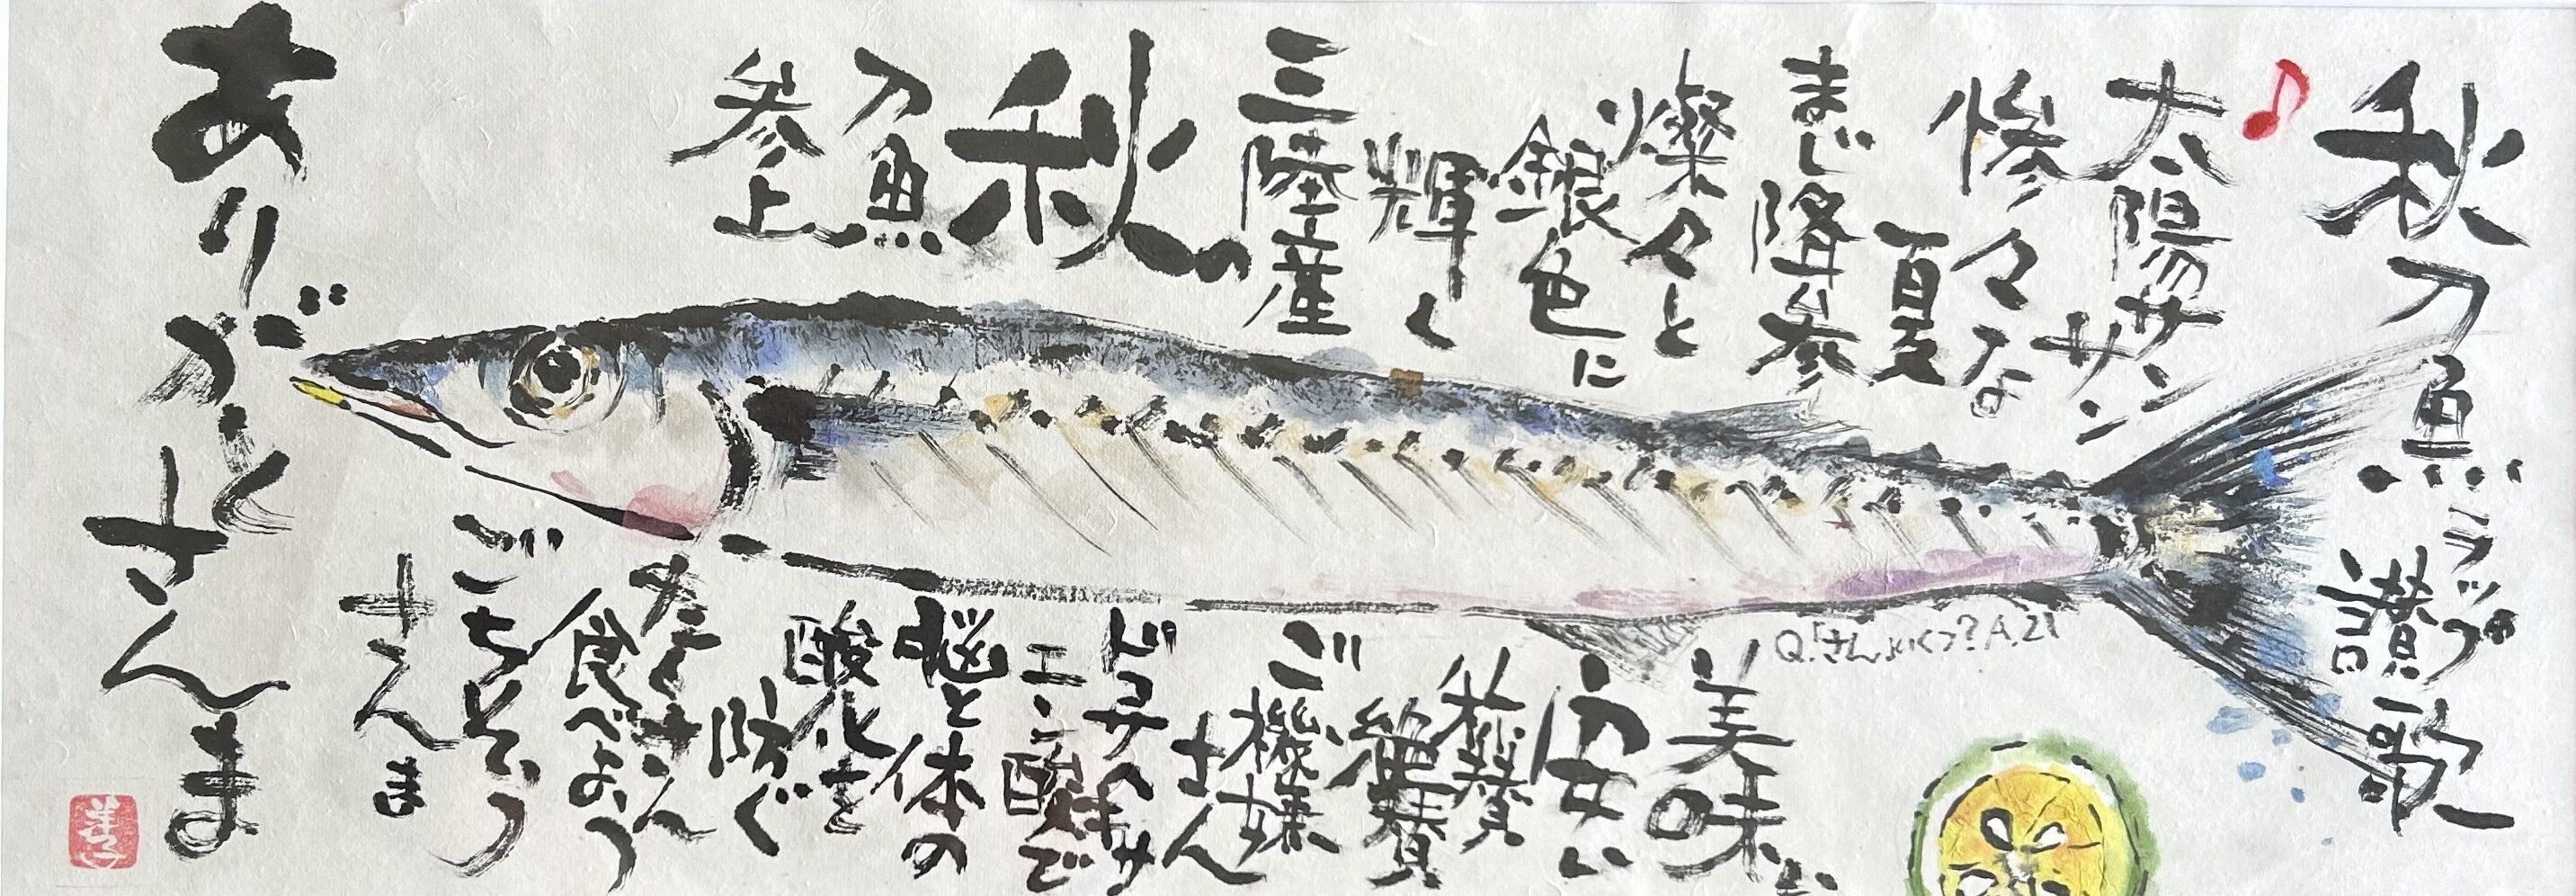 秋刀魚ラップ讃歌
♪太陽サン
サン
惨々な
夏
まじ降参
燦々と
銀色に
輝く
三陸産
の
秋
刀魚
参上
美味い
安い
称賛
絶賛
ご機嫌
さん
ドコサヘキサ
エン酸で
脳と体の
酸化を
防ぐ
たくさん
食べよう
ごちそう
さんま
ありがと
さんま